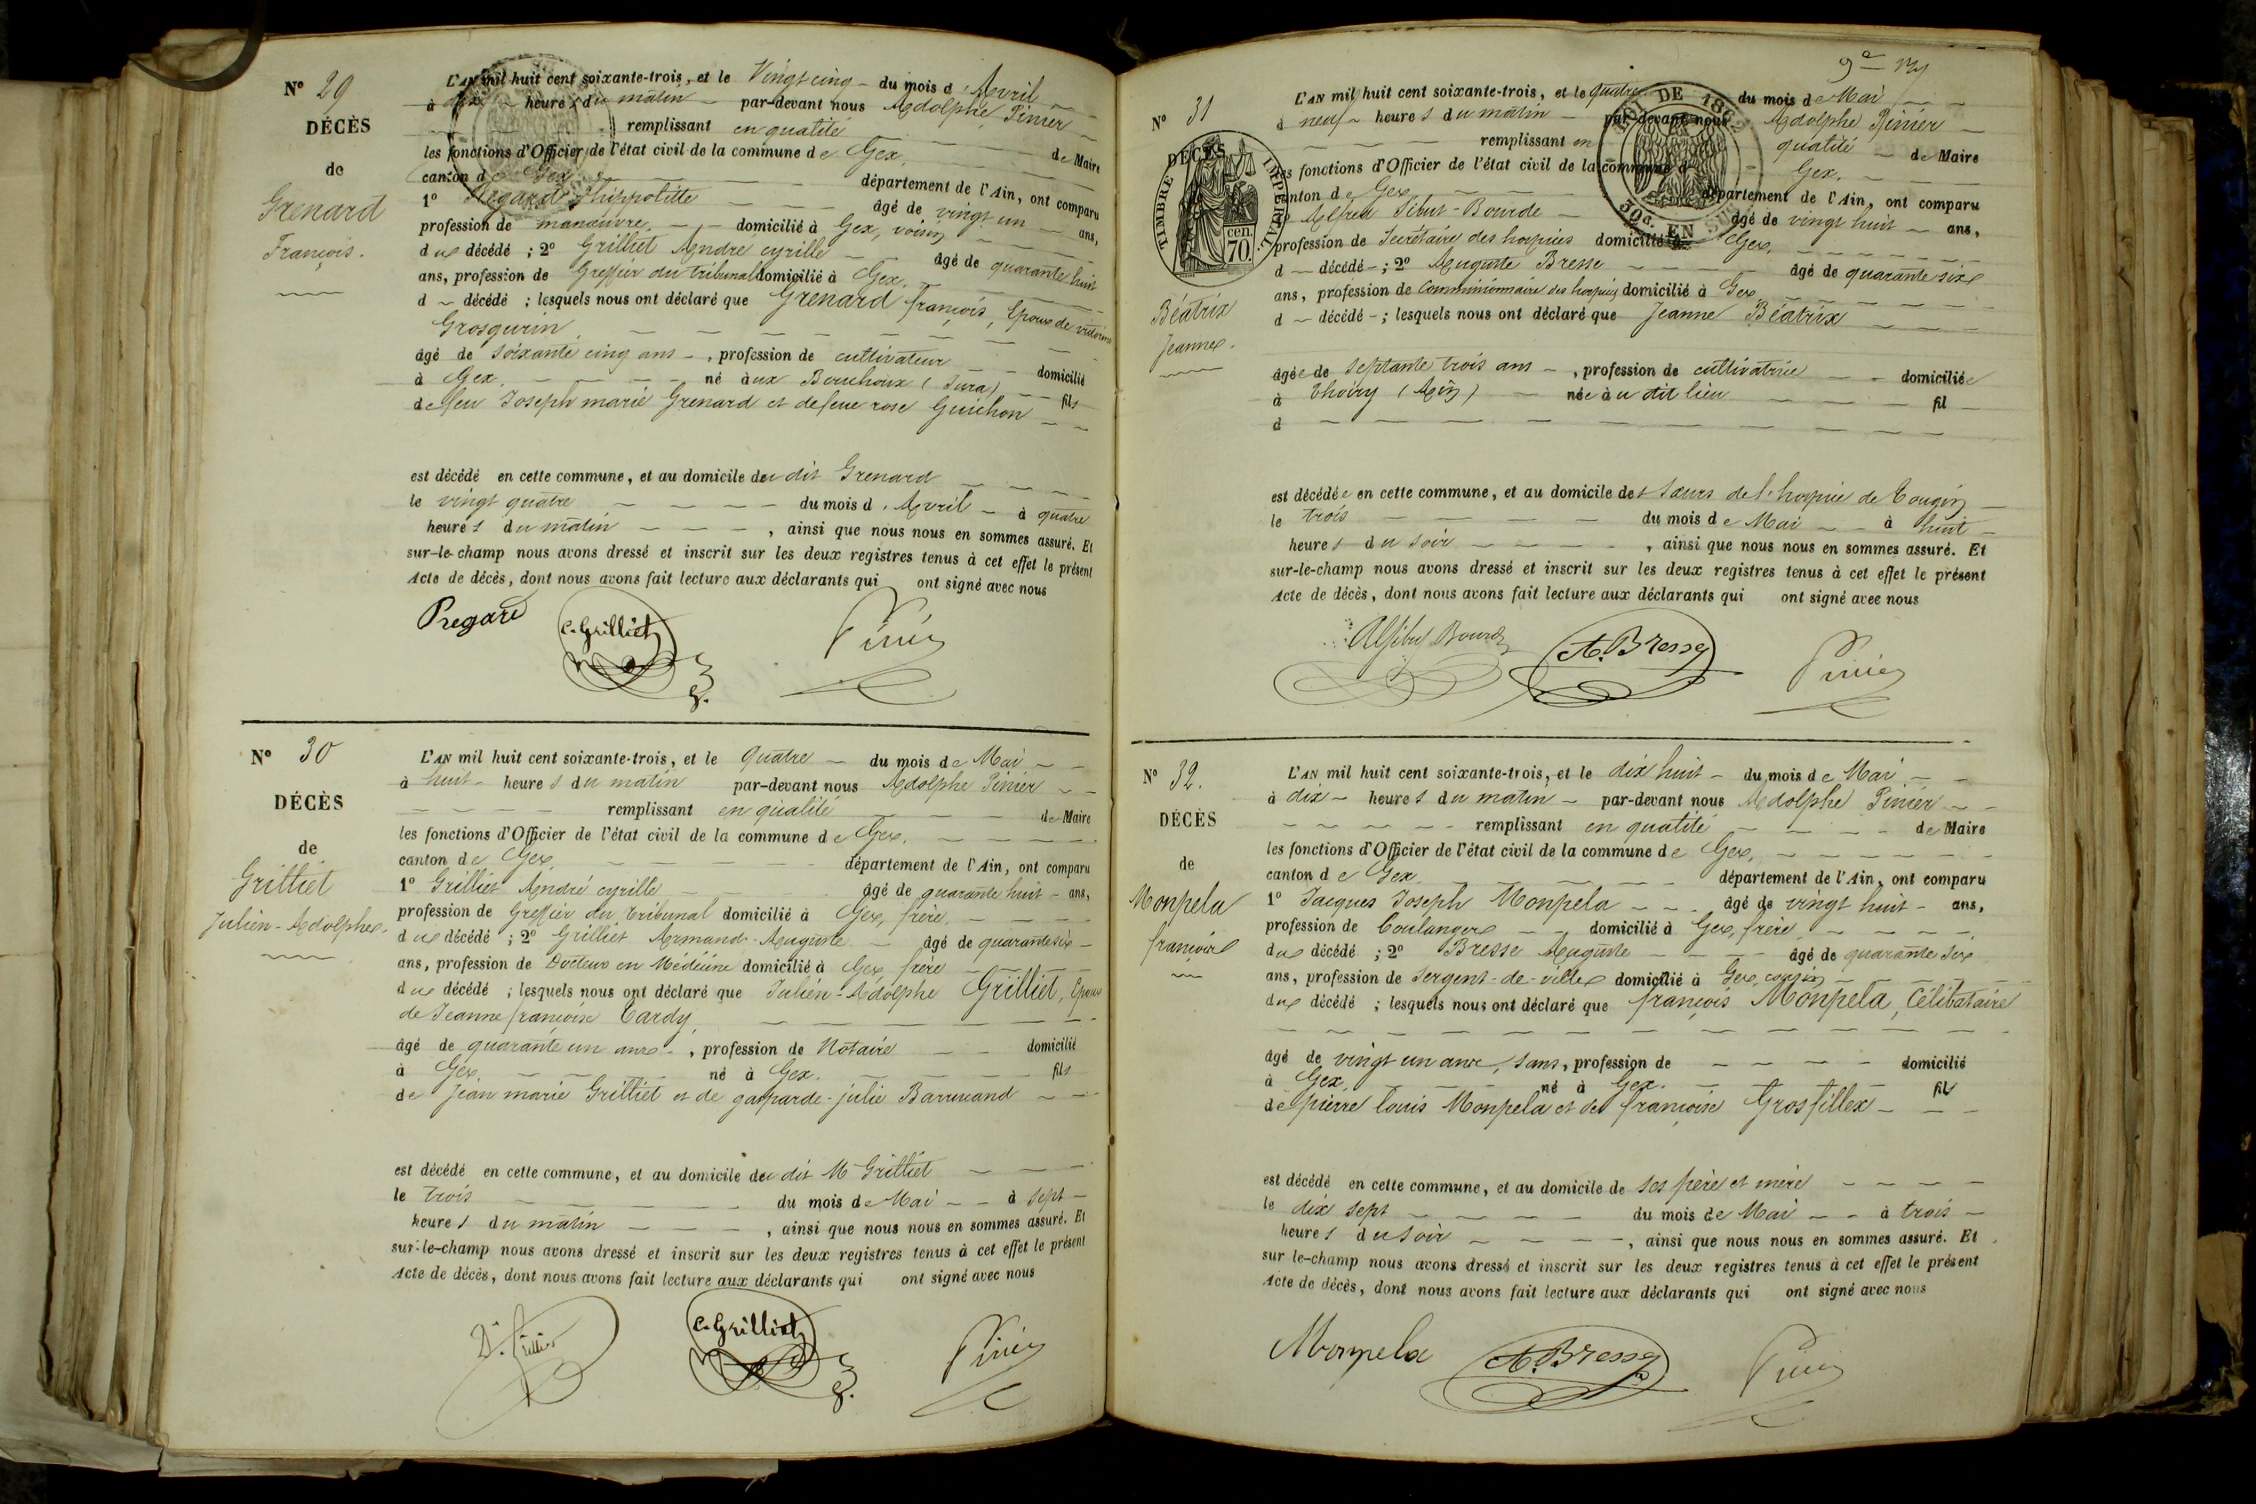 N° 29
DÉCÈS
de
Grenard
François.
L'AN mil huit cent soixante-trois, et le Vingt cinq du mois d'Avril
à heures du matin par-devant nous Adolphe Pinier
remplissant en qualité de Maire
les fonctions d'Officier de l'état civil de la commune de Gex.
canton de Gex département de l'Ain, ont comparu
1° Regard hippolitte âgé de vingt un ans,
profession de manœuvre, domicilié à Gex, voisin
due décédé ; 2° Grilliet Andre cyrille âgé de quarante huit
ans, profession de Greffier du tribunal domicilié à Gex.
d décédé ; lesquels nous ont déclaré que Grenard françois, Epoux de
Grosgurin
âgé de soixante cinq ans, profession de cultivateur domicilié
à Gex. né aux Bouchoux (Jura) fils
de feu Joseph marie Grenard et de feue rose Guichon
est décédé en cette commune, et au domicile du dit Grenard
le vingt quatre du mois d'Avril à quatre
heures du matin, ainsi que nous nous en sommes assuré. Et
sur-le-champ nous avons dressé et inscrit sur les deux registres tenus à cet effet le présent
Acte de décès, dont nous avons fait lecture aux déclarants qui ont signé avec nous
Regard C. Grilliet Pinier
N° 30
DÉCÈS
de
Grilliet
Julien-Adolphe.
L'AN mil huit cent soixante-trois, et le quatre du mois de Mai
à huit heures du matin par-devant nous Adolphe Pinier
remplissant en qualité de Maire
les fonctions d'Officier de l'état civil de la commune de Gex.
canton de Gex. département de l'Ain, ont comparu
1° Grilliet André cyrille âgé de quarante huit ans,
profession de Greffier du tribunal domicilié à Gex, frère
due décédé ; 2° Grilliet Armand-Auguste âgé de quarante six
ans, profession de Docteur en Médécine domicilié à Gex, frère
due décédé ; lesquels nous ont déclaré que Julien-Adolphe Grilliet, Epoux
de Jeanne françoise Tardy,
âgé de quarante un ans, profession de Notaire domicilié
à Gex né à Gex. fils
de Jean marie Grilliet et de gasparde-julie
est décédé en cette commune, et au domicile du dit M Grilliet
le trois du mois de Mai à sept
heures du matin, ainsi que nous nous en sommes assuré. Et
sur-le-champ nous avons dressé et inscrit sur les deux registres tenus à cet effet le présent
Acte de décès, dont nous avons fait lecture aux déclarants qui ont signé avec nous
C. Grilliet Pinier
N° 31
DÉCÈS
TIMBRE IMPÉRIAL
cen.
70.
Béatrix
Jeanne.
LOI DE 1862
30c. EN SUS
L'AN mil huit cent soixante-trois, et le quatre du mois de Mai
à neuf heures du matin par-devant nous Adolphe Pinier
remplissant en qualité de Maire
les fonctions d'Officier de l'état civil de la commune de Gex.
canton de Gex département de l'Ain, ont comparu
1° Alfred Sibut-Bourde âgé de vingt huit ans,
profession de Secrétaire des hospices domicilié à Gex,
d décédé ; 2° Auguste Bresse âgé de quarante six
ans, profession de Commissionnaire des hospices domicilié à Gex
d décédé ; lesquels nous ont déclaré que Jeanne Béatrix
âgée de septante trois ans, profession de cultivatrice domiciliée
à Thoiry (Ain) née au dit lieu fil
d
est décédée en cette commune, et au domicile des Sœurs de l'hospice de Tougin
le trois du mois de Mai à huit
heures du soir, ainsi que nous nous en sommes assuré. Et
sur-le-champ nous avons dressé et inscrit sur les deux registres tenus à cet effet le présent
Acte de décès, dont nous avons fait lecture aux déclarants qui ont signé avec nous
A Sibut Bourde A. Bresse Pinier
N° 32.
DÉCÈS
de
Monpela
françois
L'AN mil huit cent soixante-trois, et le dix huit du mois de Mai
à dix heures du matin par-devant nous Adolphe Pinier
remplissant en qualité de Maire
les fonctions d'Officier de l'état civil de la commune de Gex,
canton de Gex département de l'Ain, ont comparu
1° Jacques Joseph Monpela âgé de vingt huit ans,
profession de Boulanger domicilié à Gex, frère
due décédé ; 2° Bresse Auguste âgé de quarante six
ans, profession de Sergent-de-ville domicilié à Gex, cousin
due décédé ; lesquels nous ont déclaré que françois Monpela, Célibataire
âgé de vingt un ans, sans, profession de domicilié
à Gex né à Gex. fils
de pierre louis Monpela et de françoise Grosfillex
est décédé en cette commune, et au domicile de ses père et mère
le dix sept du mois de Mai à trois
heures du soir, ainsi que nous nous en sommes assuré. Et
sur le-champ nous avons dressé et inscrit sur les deux registres tenus à cet effet le présent
Acte de décès, dont nous avons fait lecture aux déclarants qui ont signé avec nous
Monpela A. Bresse Pinier